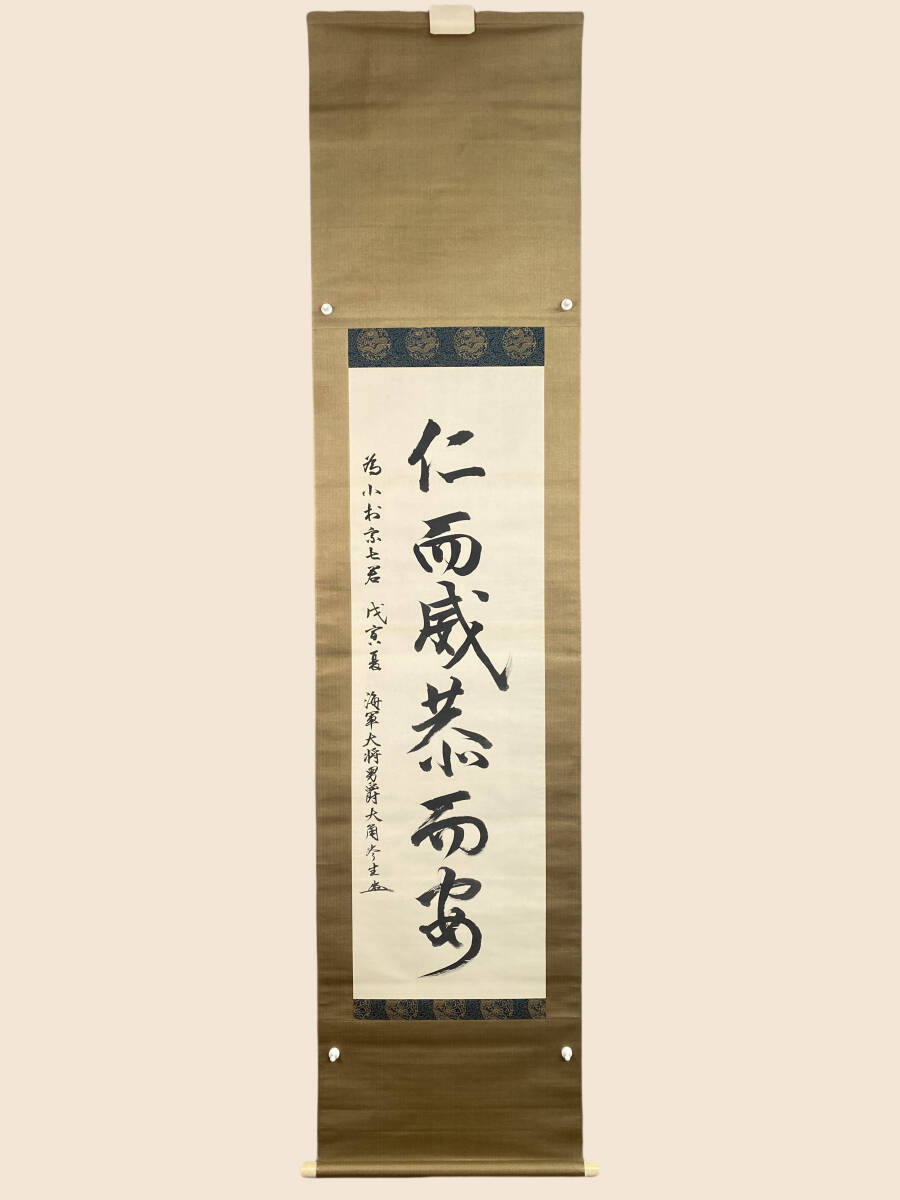 仁而威恭而安
為小村宗七君 戊寅夏 海軍大将男爵大角岑生書